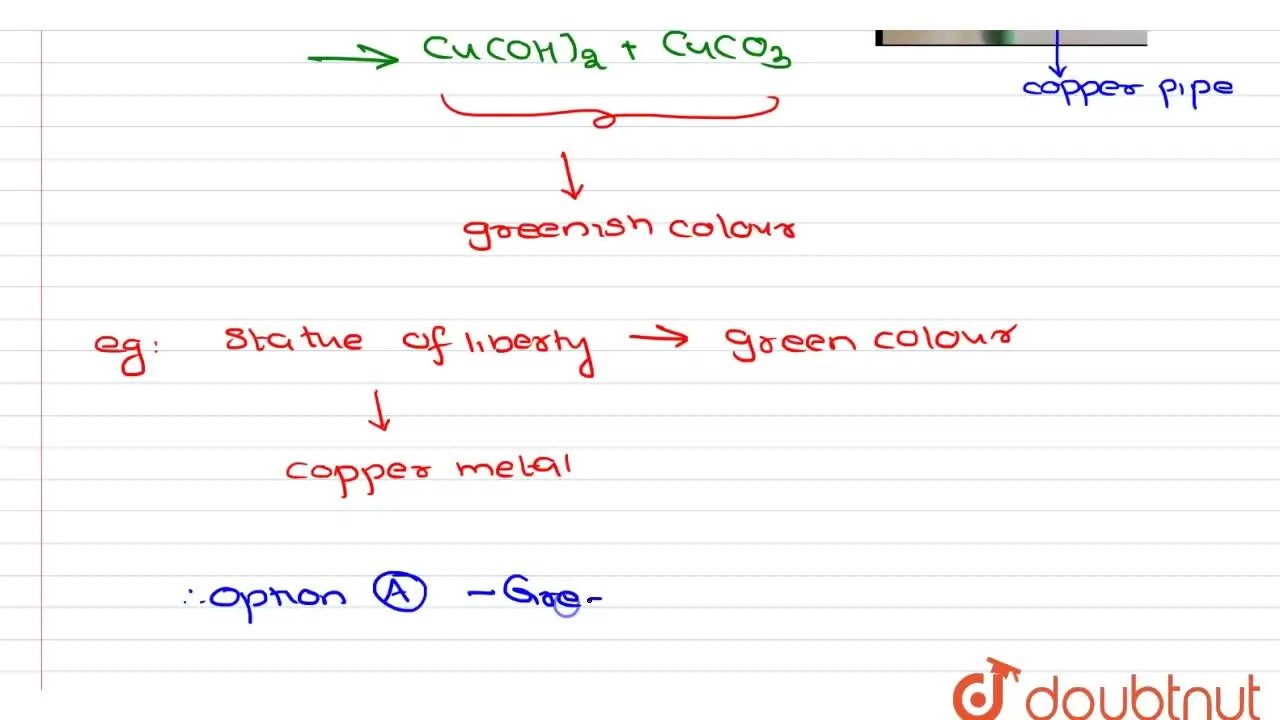 → Cu(OH)2 + CuCO3
copper pipe
↓
greenish colour
eg: Statue of liberty → green colour
↓
copper metal
∴ option A - Gree
doubtnut